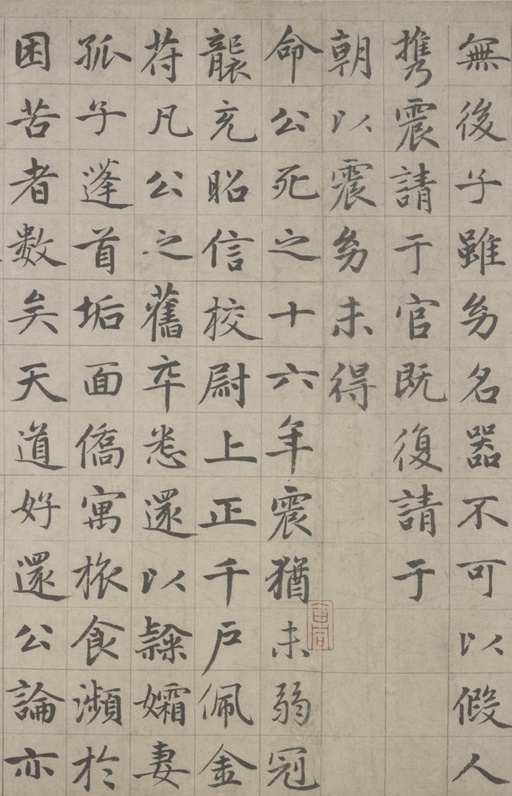 無後子雖㓜名器不可以假人
携震請于官既復請于
朝以震㓜未得
命公死之十六年震猶未弱冠
襲充昭信校尉上正千戶佩金
符凡公之舊卒悉還以隸孀妻
孤子蓬首垢面僑寓旅食瀕於
困苦者數矣天道好還公論亦